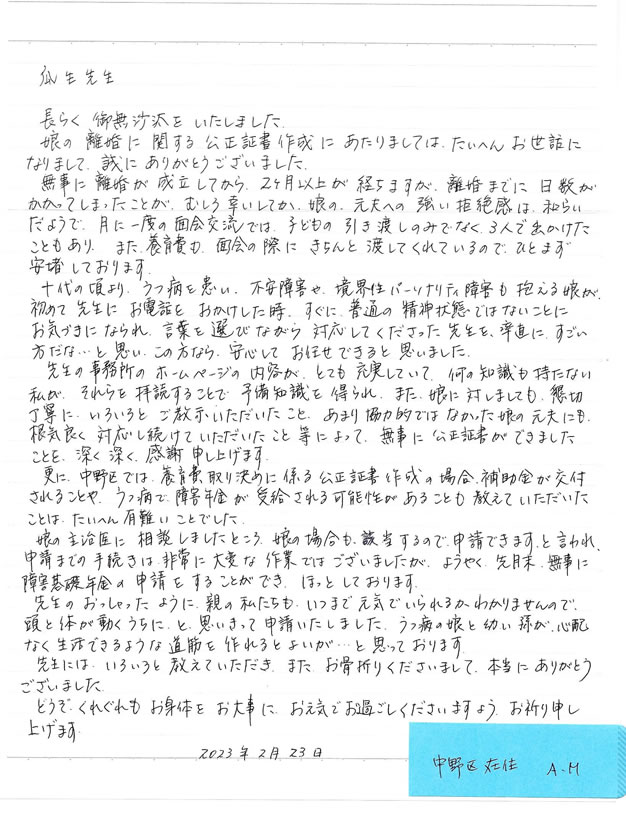 瓜生先生
長らく御無沙汰をいたしました。
娘の離婚に関する公正証書作成にあたりましては、たいへんお世話に
なりまして、誠にありがとうございました。
無事に離婚が成立してから、2ヶ月以上が経ちますが、離婚までに日数が
かかってしまったことが、むしろ幸いしてか、娘の、元夫への強い拒絶感は、和らい
だようで、月に一度の面会交流では、子どもの引き渡しのみでなく、3人で出かけた
こともあり、また、養育費も、面会の際にきちんと渡してくれているので、ひとまず
安堵しております。
十代の頃より、うつ病を患い、不安障害や、境界性パーソナリティ障害も抱える娘が、
初めて先生にお電話をおかけした時、すぐに、普通の精神状態ではないことに
お気づきになられ、言葉を選びながら対応してくださった先生を、率直に、すごい
方だな…と思い、この方なら、安心してお任せできると思いました。
先生の事務所のホームページの内容が、とても充実していて、何の知識も持たない
私が、それらを拝読することで予備知識を得られ、また、娘に対しましても、懇切
丁寧に、いろいろとご教示いただいたこと、あまり協力的ではなかった娘の元夫にも、
根気良く対応し続けていただいたこと等によって、無事に公正証書ができました
ことを、深く深く、感謝申し上げます。
更に、中野区では、養育費取り決めに係る公正証書作成の場合、補助金が交付
されることや、うつ病で、障害年金が受給される可能性があることも教えていただいた
ことは、たいへん有難いことでした。
娘の主治医に相談しましたところ、娘の場合も、該当するので、申請できます、と言われ、
申請までの手続きは、非常に大変な作業ではございましたが、ようやく、先月末、無事に
障害基礎年金の申請をすることができ、ほっとしております。
先生のおっしゃったように、親の私たちも、いつまで元気でいられるかわかりませんので、
頭と体が動くうちに、と、思いきって申請いたしました。うつ病の娘と幼い孫が、心配
なく生活できるような道筋を作れるとよいが…と思っております。
先生には、いろいろと教えていただき、また、お骨折りくださいまして、本当にありがとう
ございました。
どうぞ、くれぐれもお身体をお大事に、お元気でお過ごしくださいますよう、お祈り申し
上げます。
2023年2月23日
中野区在住 A.M